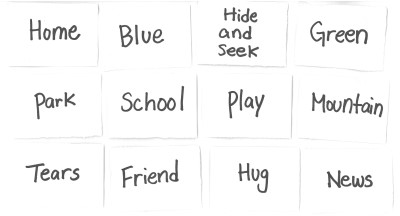 Home Blue Hide and Seek Green
Park School Play Mountain
Tears Friend Hug News